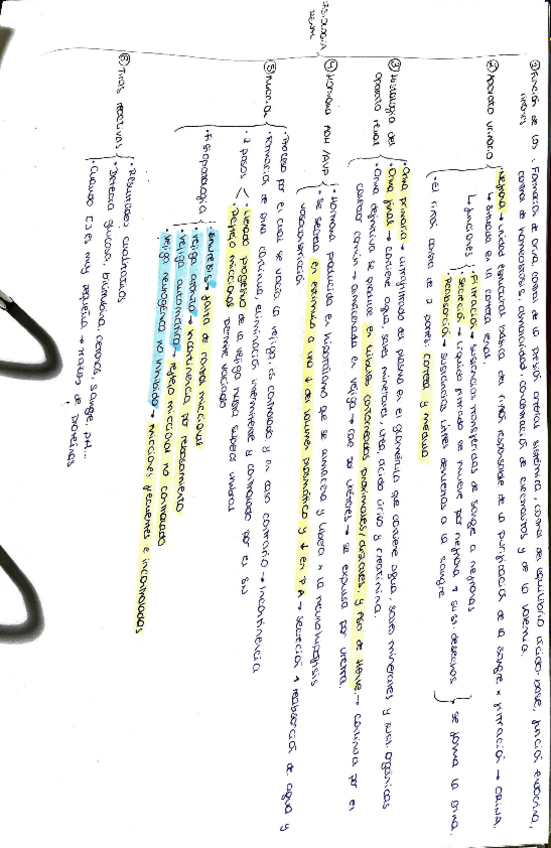 FISIOLOGIA RENAL
① Función de los riñones: Formación de orina, control de la presión arterial sistémica, control de equilibrio ácido-base, función endocrina,
control de homeostasis, osmolaridad, concentración de electrolitos y de la volemia.
② Aparato urinario
nefrona → unidad estructural básica de riñón responsable de la purificación de la sangre x filtración → orina.
↳ embebida en la corteza renal.
↳ funciones
Filtración → sustancias transferidas de sangre a nefronas
Secreción → líquido filtrado se mueve por nefrona + sust. desechos
Reabsorción → sustancias útiles devueltas a la sangre
se forma la orina.
• El riñón consta de 2 partes: corteza y médula
③ Histología del aparato renal
• Orina primaria → ultrafiltrado del plasma en el glomérulo que contiene agua, sales minerales y sust. orgánicas
• Orina final → contiene agua, sales minerales, urea, ácido úrico y creatinina.
• Orina definitiva se produce en túbulos contorneados proximales/distales, y asa de Henle → continúa por el
colector común → almacenada en vejiga → cae por uréteres → se expulsa por uretra.
④ Hormona ADH/AVP
• Hormona producida en hipotálamo que se almacena y libera x la neurohipófisis
• Se secreta en estímulo a una ↓ de volumen plasmático y ↓ en PA → secreción + reabsorción de agua y
vasoconstricción
⑤ Micción
• Proceso por el cual se vacía la vejiga, es controlado y en caso contrario → incontinencia
• Formación de orina continua, eliminación intermitente y controlado por el SN
• 2 pasos
Llenado progresivo de la vejiga hasta superar umbral
Reflejo miccional permite vaciado
• Fisiopatología
• Enuresis → falta de control miccional
• vejiga atónica → incontinencia por rebosamiento
• vejiga automática → reflejo miccional no controlado
• vejiga neurogénica no inhibida → micciones frecuentes e incontroladas
⑥ Tiras reactivas
• Resultados cualitativos
• Detecta glucosa, bilirrubina, cetona, sangre, pH...
• Cuando es muy pequeña → trazas de proteínas